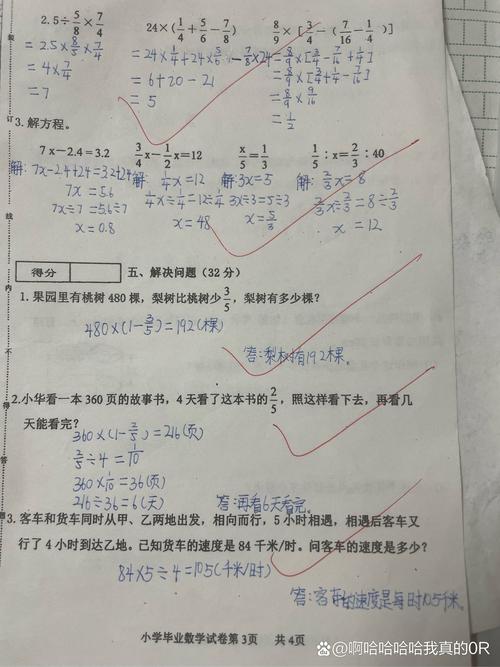 2.5÷5/8×7/4   24×(1/4+5/6-7/8)   8/9×[3/4-(7/16-1/4)]
=2.5×8/5×7/4   =24×1/4+24×5/6-7/8×24   =8/9×[3/4-7/16+1/4]
=4×7/4   =6+20-21   =8/9×[3/4+1/4-7/16]
=7   =5   =8/9×9/16
=1/2
3.解方程。
7x-2.4=3.2   3/4x-1/2x=12   x/5=1/3   1/5:x=2/3:40
解:7x-2.4+2.4=3.2+2.4   解:1/4x=12   解:3x=5   解:2/3x=8
7x=5.6   1/4x÷1/4=12÷1/4   3x÷3=5÷3   2/3x÷2/3=8÷2/3
7x÷7=5.6÷7   x=48   x=5/3   x=12
x=0.8
得分   五、解决问题(32分)
1.果园里有桃树480棵，梨树比桃树少3/5，梨树有多少棵？
480×(1-3/5)=192(棵)
答:梨树有192棵。
2.小华看一本360页的故事书，4天看了这本书的2/5，照这样看下去，再看几
天能看完？
360×(1-2/5)=216(页)
2/5÷4=1/10
360×1/10=36(页)
216÷36=6(天)   答:再看6天看完。
3.客车和货车同时从甲、乙两地出发，相向而行，5小时相遇，相遇后客车又
行了4小时到达乙地。已知货车的速度是84千米/时。问客车的速度是多少？
84×5÷4=105(千米/时)
答:客车的速度是每时105千米。
小学毕业数学试卷第3页   共4页
装
订
线
内
不
得
答
@啊哈哈哈哈我真的0R